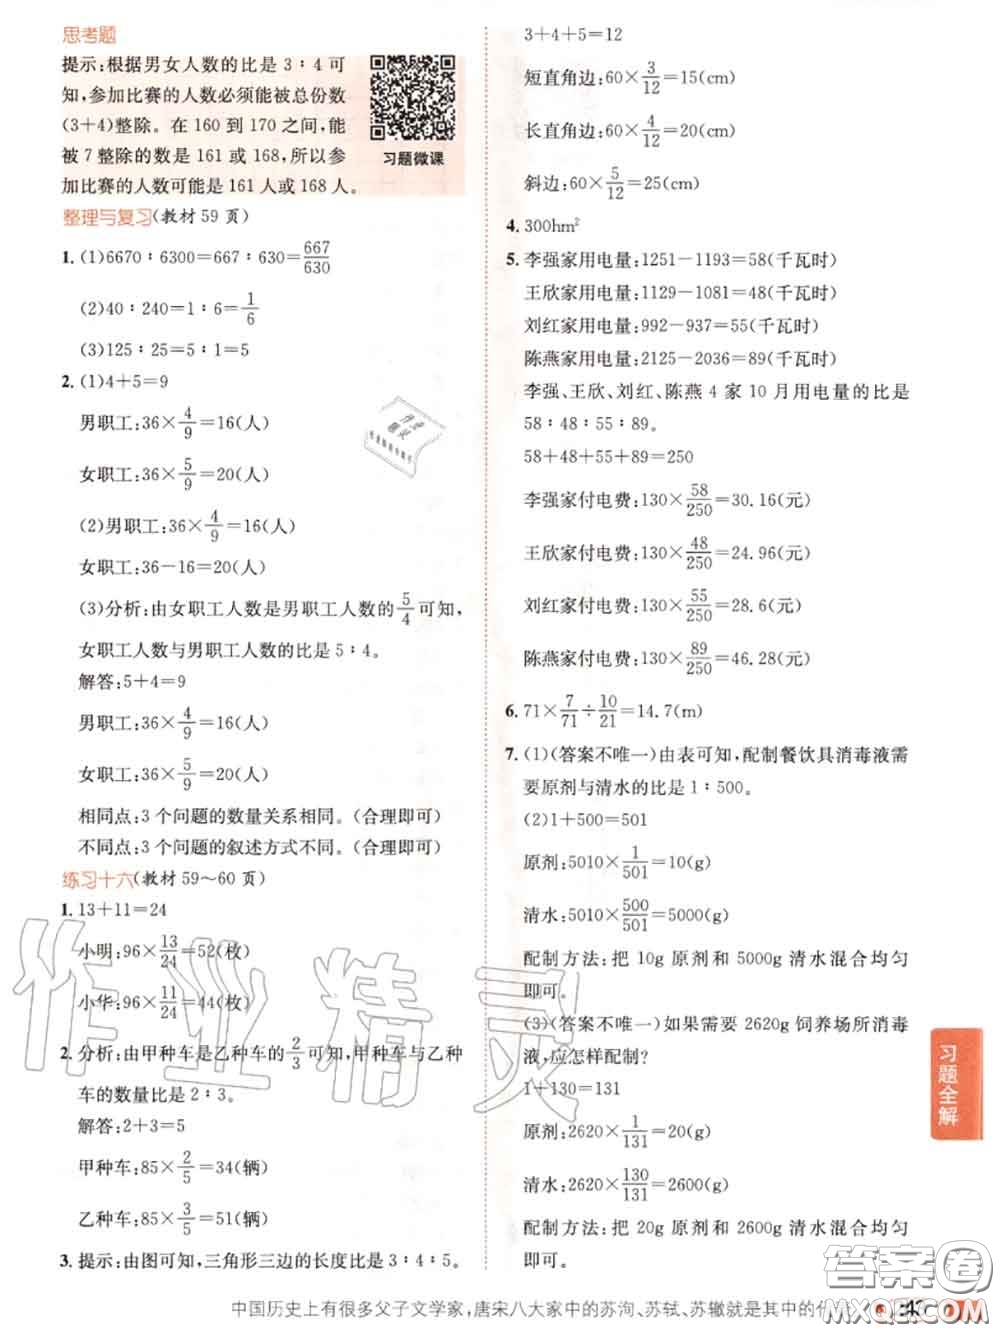 思考题
提示:根据男女人数的比是 3∶4 可
知,参加比赛的人数必须能被总份数
(3+4)整除。在 160 到 170 之间,能
被 7 整除的数是 161 或 168,所以参
加比赛的人数可能是 161 人或 168 人。
习题微课
整理与复习(教材 59 页)
1. (1)6670∶6300=667∶630=667/630
(2)40∶240=1∶6=1/6
(3)125∶25=5∶1=5
2. (1)4+5=9
男职工:36×4/9=16(人)
女职工:36×5/9=20(人)
(2)男职工:36×4/9=16(人)
女职工:36-16=20(人)
(3)分析:由女职工人数是男职工人数的5/4可知,
女职工人数与男职工人数的比是 5∶4。
解答:5+4=9
男职工:36×4/9=16(人)
女职工:36×5/9=20(人)
相同点:3 个问题的数量关系相同。(合理即可)
不同点:3 个问题的叙述方式不同。(合理即可)
练习十六(教材 59～60 页)
1. 13+11=24
小明:96×13/24=52(枚)
小华:96×11/24=44(枚)
2. 分析:由甲种车是乙种车的2/3可知,甲种车与乙种
车的数量比是 2∶3。
解答:2+3=5
甲种车:85×2/5=34(辆)
乙种车:85×3/5=51(辆)
3. 提示:由图可知,三角形三边的长度比是 3∶4∶5。
3+4+5=12
短直角边:60×3/12=15(cm)
长直角边:60×4/12=20(cm)
斜边:60×5/12=25(cm)
4. 300hm²
5. 李强家用电量:1251-1193=58(千瓦时)
王欣家用电量:1129-1081=48(千瓦时)
刘红家用电量:992-937=55(千瓦时)
陈燕家用电量:2125-2036=89(千瓦时)
李强、王欣、刘红、陈燕 4 家 10 月用电量的比是
58∶48∶55∶89。
58+48+55+89=250
李强家付电费:130×58/250=30.16(元)
王欣家付电费:130×48/250=24.96(元)
刘红家付电费:130×55/250=28.6(元)
陈燕家付电费:130×89/250=46.28(元)
6. 71×7/71÷10/21=14.7(m)
7. (1)(答案不唯一)由表可知,配制餐饮具消毒液需
要原剂与清水的比是 1∶500。
(2)1+500=501
原剂:5010×1/501=10(g)
清水:5010×500/501=5000(g)
配制方法:把 10g 原剂和 5000g 清水混合均匀
即可。
(3)(答案不唯一)如果需要 2620g 饲养场所消毒
液,应怎样配制?
1+130=131
原剂:2620×1/131=20(g)
清水:2620×130/131=2600(g)
配制方法:把 20g 原剂和 2600g 清水混合均匀
即可。
习题全解
作业精灵
中国历史上有很多父子文学家,唐宋八大家中的苏洵、苏轼、苏辙就是其中的代
答案圈